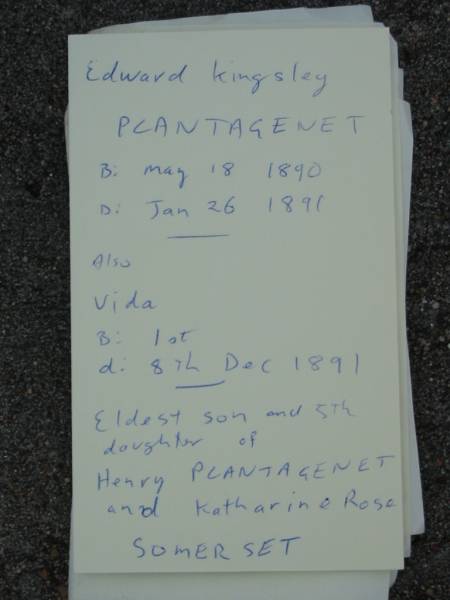 Edward Kingsley
PLANTAGENET
B: May 18 1890
D: Jan 26 1891
Also
Vida
B: 1st
d: 8th Dec 1891
Eldest son and 5th
daughter of
Henry PLANTAGENET
and Katharine Rose
SOMERSET